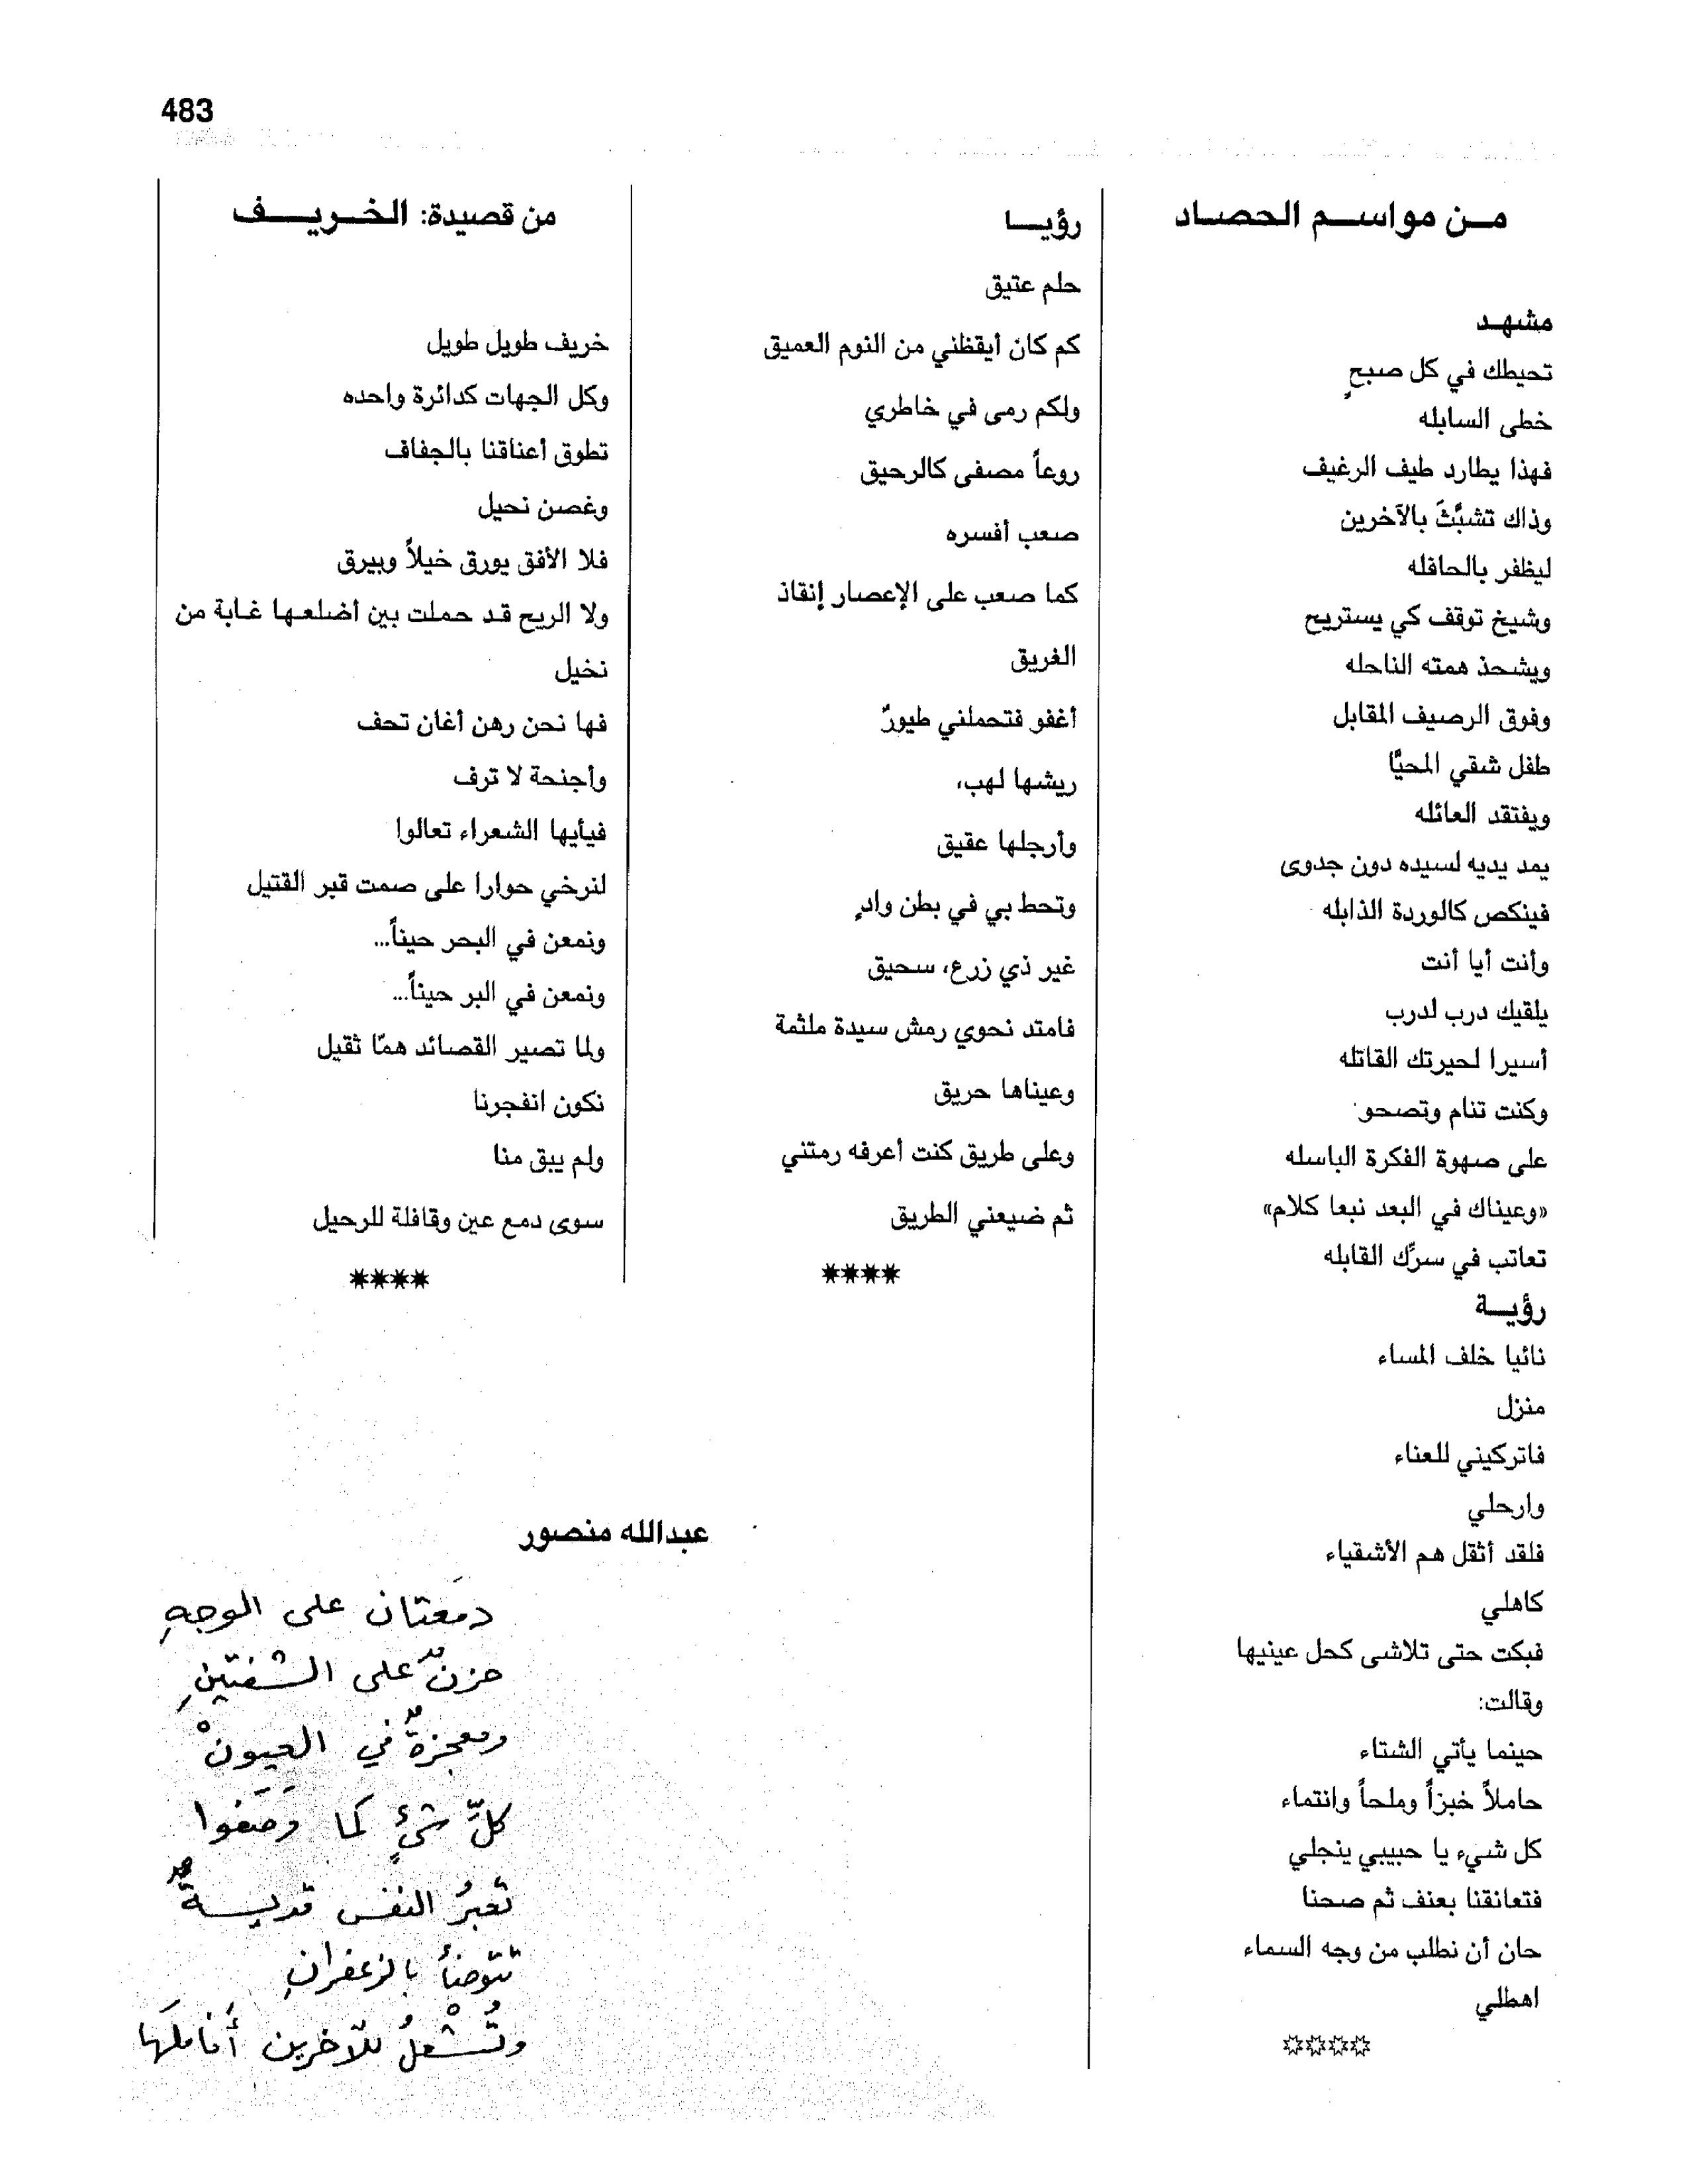 483
مـن مواسـم الـحصـاد
مشهـد
تحيطك في كل صبحٍ
خطى السابله
فهذا يطارد طيف الرغيف
وذاك تشبَّثَ بالآخرين
ليظفر بالحافله
وشيخ توقف كي يستريح
ويشحذ همته الناحله
وفوق الرصيف المقابل
طفل شقي المحيَّا
ويفتقد العائله
يمد يديه لسيده دون جدوى
فينكص كالوردة الذابله
وأنت أيا أنت
يلقيك درب لدرب
أسيرا لحيرتك القاتله
وكنت تنام وتصحو
على صهوة الفكرة الباسله
«وعيناك في البعد نبعا كلام»
تعاتب في سرِّك القابله
رؤيـة
نائيا خلف المساء
منزل
فاتركيني للعناء
وارحلي
فلقد أثقل هم الأشقياء
كاهلي
فبكت حتى تلاشى كحل عينيها
وقالت:
حينما يأتي الشتاء
حاملاً خبزاً وملحاً وانتماء
كل شيء يا حبيبي ينجلي
فتعانقنا بعنف ثم صحنا
حان أن نطلب من وجه السماء
اهطلي
رؤيـا
حلم عتيق
كم كان أيقظني من النوم العميق
ولكم رمى في خاطري
روعاً مصفى كالرحيق
صعب أفسره
كما صعب على الإعصار إنقاذ
الغريق
أغفو فتحملني طيورٌ
ريشها لهب،
وأرجلها عقيق
وتحط بي في بطن وادٍ
غير ذي زرع، سحيق
فامتد نحوي رمش سيدة ملثمة
وعيناها حريق
وعلى طريق كنت أعرفه رمتني
ثم ضيعني الطريق
****
من قصيدة: الـخـريـف
خريف طويل طويل
وكل الجهات كدائرة واحده
تطوق أعناقنا بالجفاف
وغصن نحيل
فلا الأفق يورق خيلاً وبيرق
ولا الريح قد حملت بين أضلعها غابة من
نخيل
فها نحن رهن أغان تحف
وأجنحة لا ترف
فيأيها الشعراء تعالوا
لنرخي حوارا على صمت قبر القتيل
ونمعن في البحر حيناً...
ونمعن في البر حيناً...
ولما تصير القصائد همًا ثقيل
نكون انفجرنا
ولم يبق منا
سوى دمع عين وقافلة للرحيل
****
عبدالله منصور
دمَعتان على الوجهِ
حزنٌ على الشفتينِ
ومعجزةٌ في العيونْ
كلُّ شيءٍ كما وَصَفوا
تَعبرُ النفس قديسةٌ
تتوضأُ بالزعفرانِ
وتُشْعلُ للآخرين أَناملَها